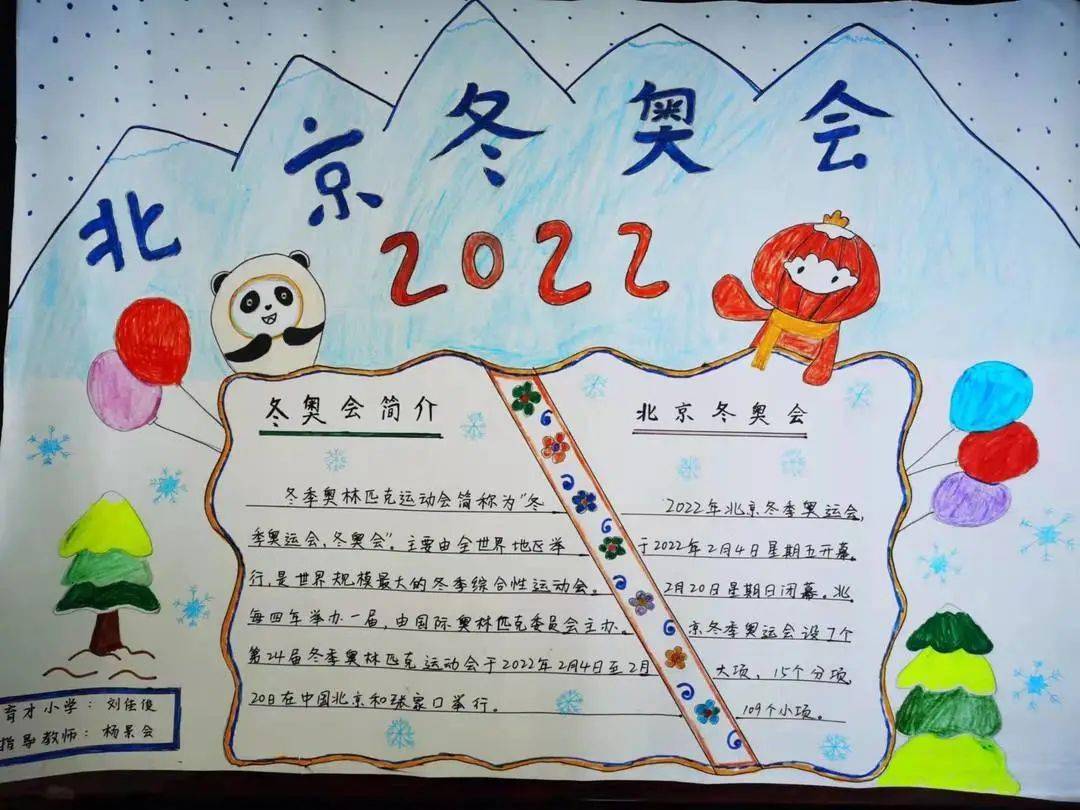 北京冬奥会
2022
冬奥会简介
冬季奥林匹克运动会简称为“冬
季奥运会、冬奥会”。主要由全世界地区举
行,是世界规模最大的冬季综合性运动会。
每四年举办一届,由国际奥林匹克委员会主办。
第24届冬季奥林匹克运动会于2022年2月4日至2月
20日在中国北京和张家口举行。
北京冬奥会
2022年北京冬季奥运会,
于2022年2月4日星期五开幕。
2月20日星期日闭幕。北
京冬季奥运会设7个
大项,15个分项
109个小项。
育才小学:刘佳俊
指导教师:杨景会